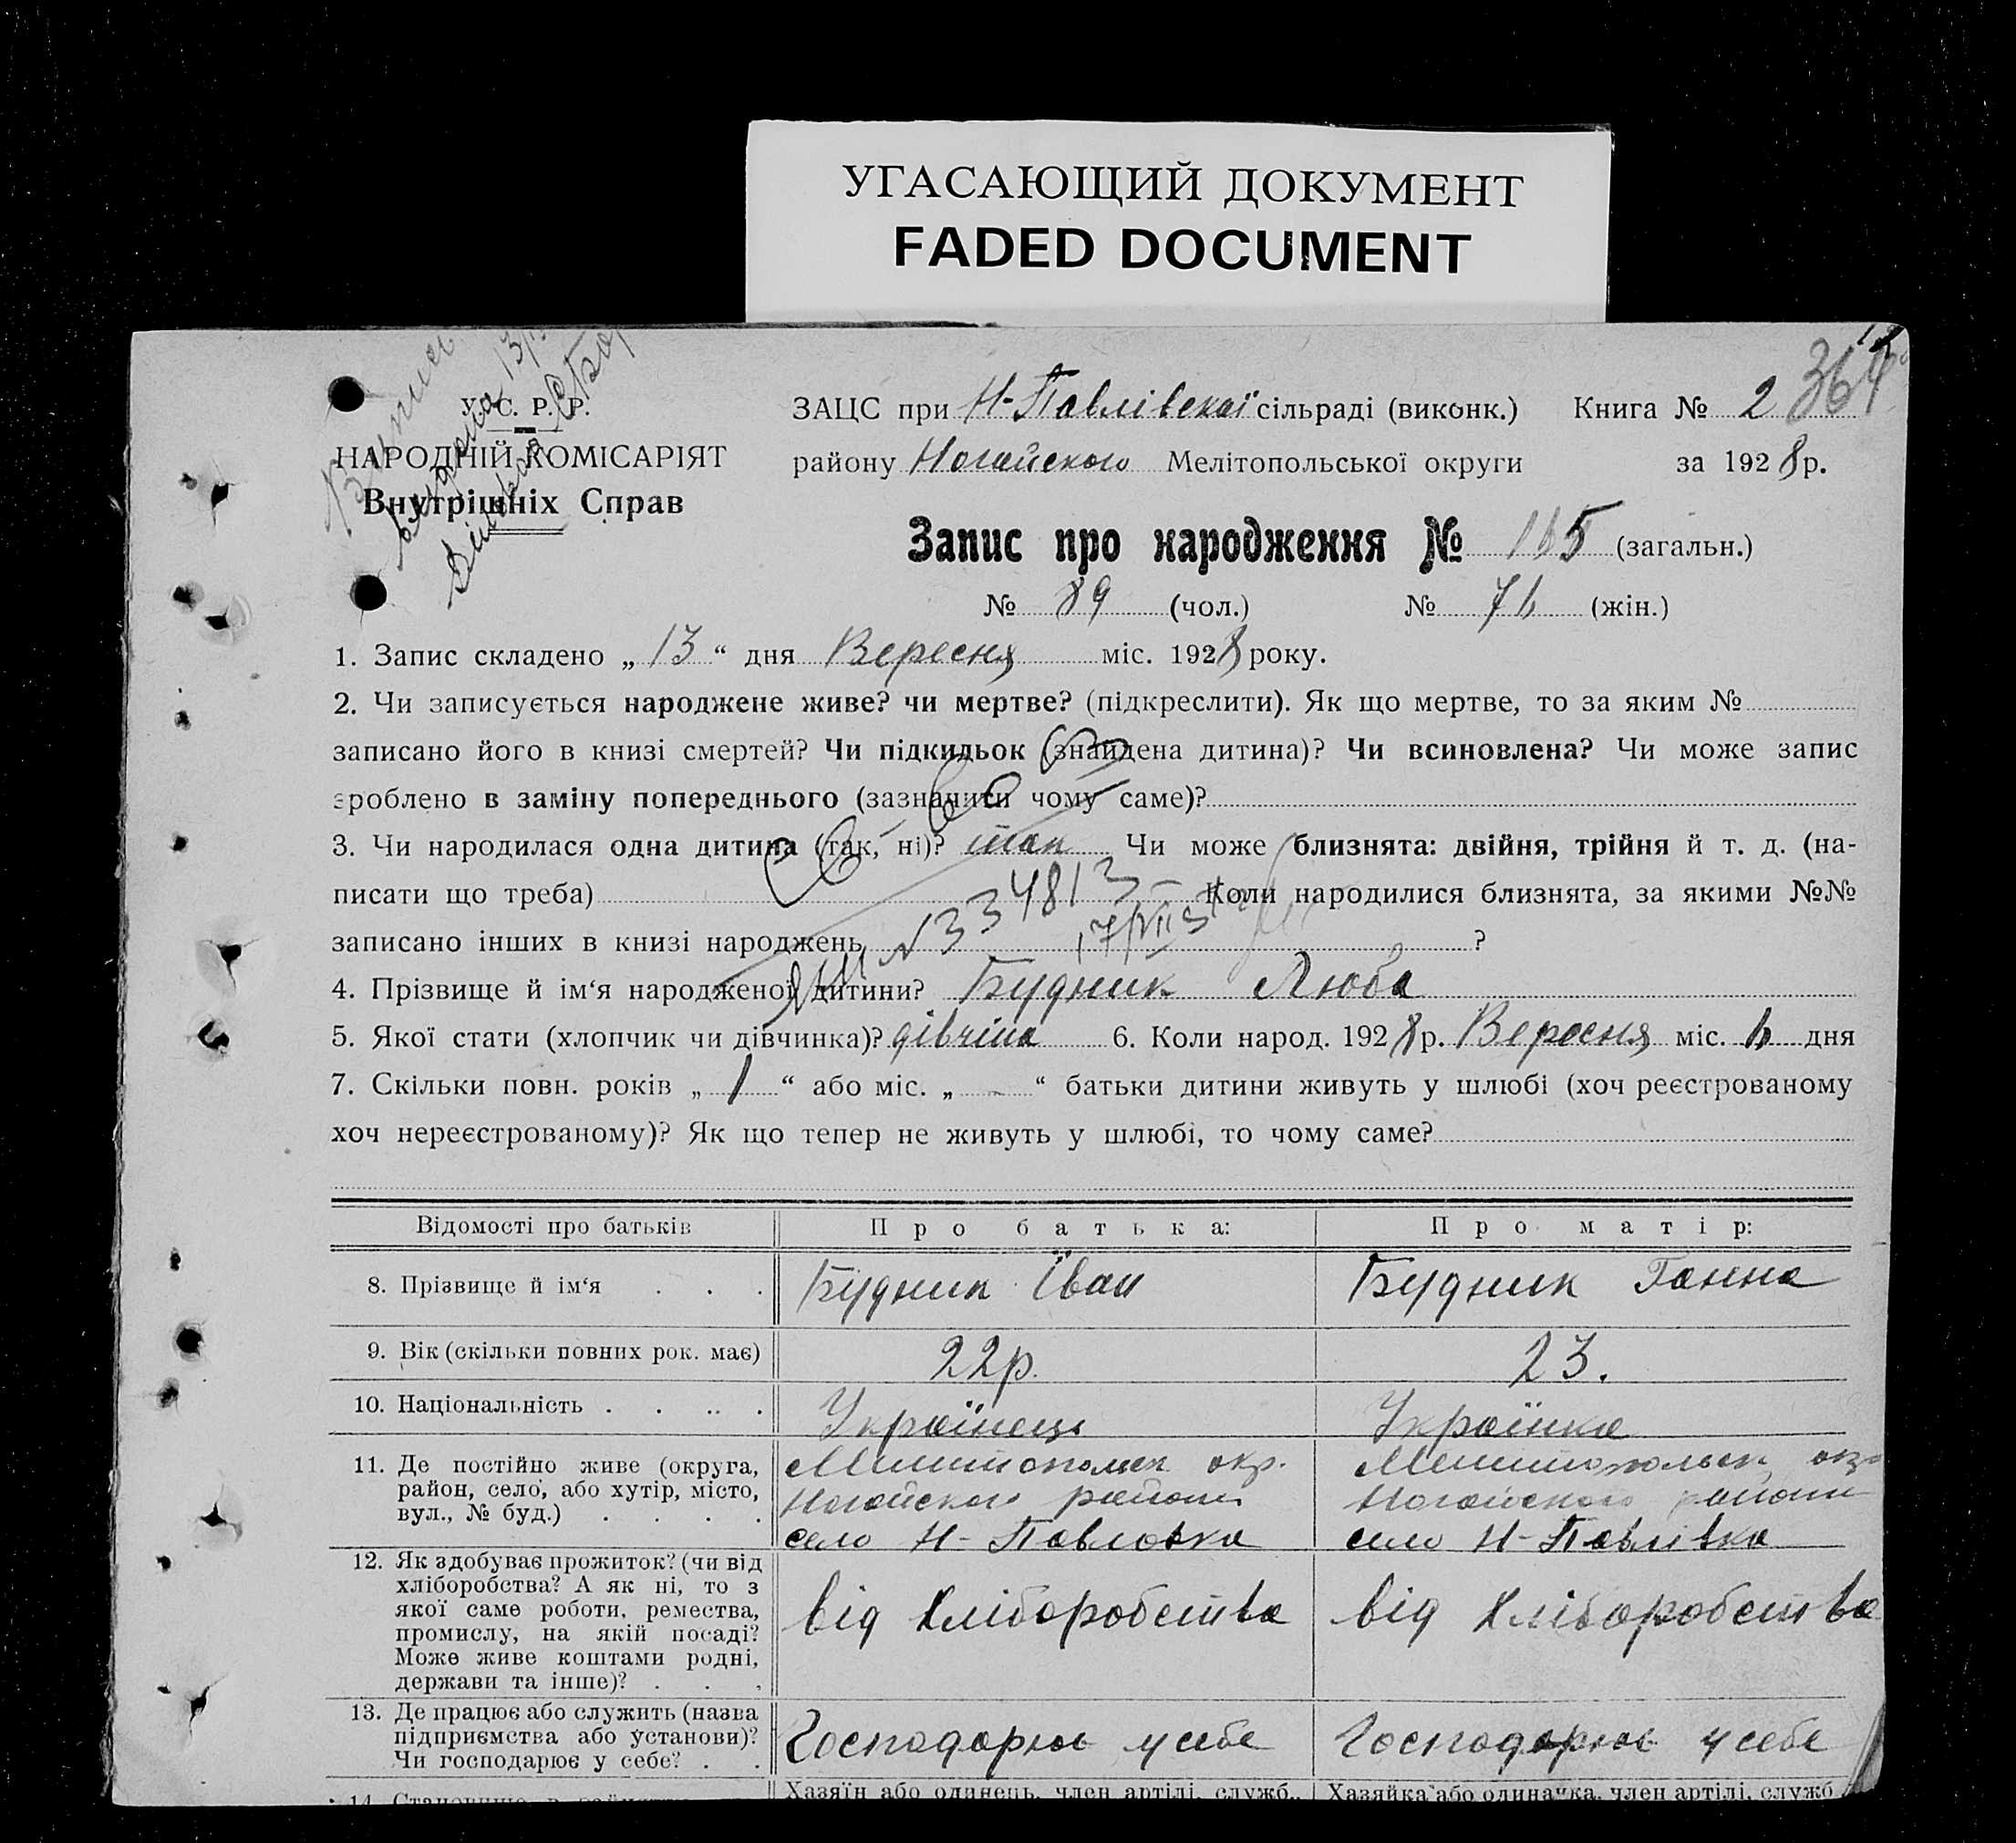 УГАСАЮЩИЙ ДОКУМЕНТ
FADED DOCUMENT
364
У. С. Р. Р.
НАРОДНІЙ КОМІСАРІЯТ
Внутрішніх Справ
ЗАЦС при Н-Павлівскої сільраді (виконк.) Книга № 2
району Ногайского Мелітопольської округи за 1928 р.
Запис про народження № 165 (загальн.)
№ 89 (чол.) № 76 (жін.)
1. Запис складено „ 13 “ дня Вересня міс. 1928 року.
2. Чи записується народжене живе? чи мертве? (підкреслити). Як що мертве, то за яким №
записано його в книзі смертей? Чи підкидьок (знайдена дитина)? Чи всиновлена? Чи може запис
зроблено в заміну попереднього (зазначити чому саме)?
3. Чи народилася одна дитина (так, ні)? так Чи може близнята: двійня, трійня й т. д. (на-
писати що треба) Коли народилися близнята, за якими №№
записано інших в книзі народжень ?
№ 334813
4. Прізвище й ім‘я народженої дитини? Будник Люба
5. Якої стати (хлопчик чи дівчинка)? дівчина 6. Коли народ. 1928 р. Вересня міс. 6 дня
7. Скільки повн. років „ 1 “ або міс. „ - “ батьки дитини живуть у шлюбі (хоч реєстрованому
хоч нереєстрованому)? Як що тепер не живуть у шлюбі, то чому саме?
Відомості про батьків Про батька: Про матір:
8. Прізвище й ім‘я . . . Будник Іван Будник Ганна
9. Вік (скільки повних рок. має) 22р. 23.
10. Національність . . . . Українець Українка
11. Де постійно живе (округа, Мелитопольск окр. Мелитопольск окр
район, село, або хутір, місто, Ногайского района Ногайского района
вул., № буд.) . . . . село Н-Павловка село Н-Павлівка
12. Як здобуває прожиток? (чи від
хліборобства? А як ні, то з
якої саме роботи, ремества, від Хліборобства від Хліборобства
промислу, на якій посаді?
Може живе коштами родні,
держави та інше)? . . .
13. Де працює або служить (назва
підприємства або установи)? Господарює у себе Господарює у себе
Чи господарює у себе? . .
Хазяїн або одинець, член артілі, служб., Хазяйка або одиначка, член артілі, служб
14. Становище в